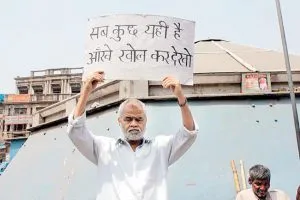 सब कुछ यही है
आंखे खोल कर देखो